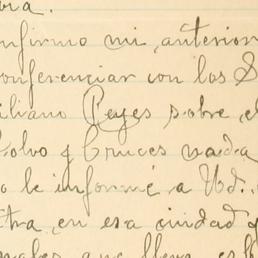 ora.
onfirmo mi anterior
onferenciar con los S
iliano Reyes sobre el
Colvo y Cruces nada
o le informé a Ud.
tra, en esa ciudad y
que lleva